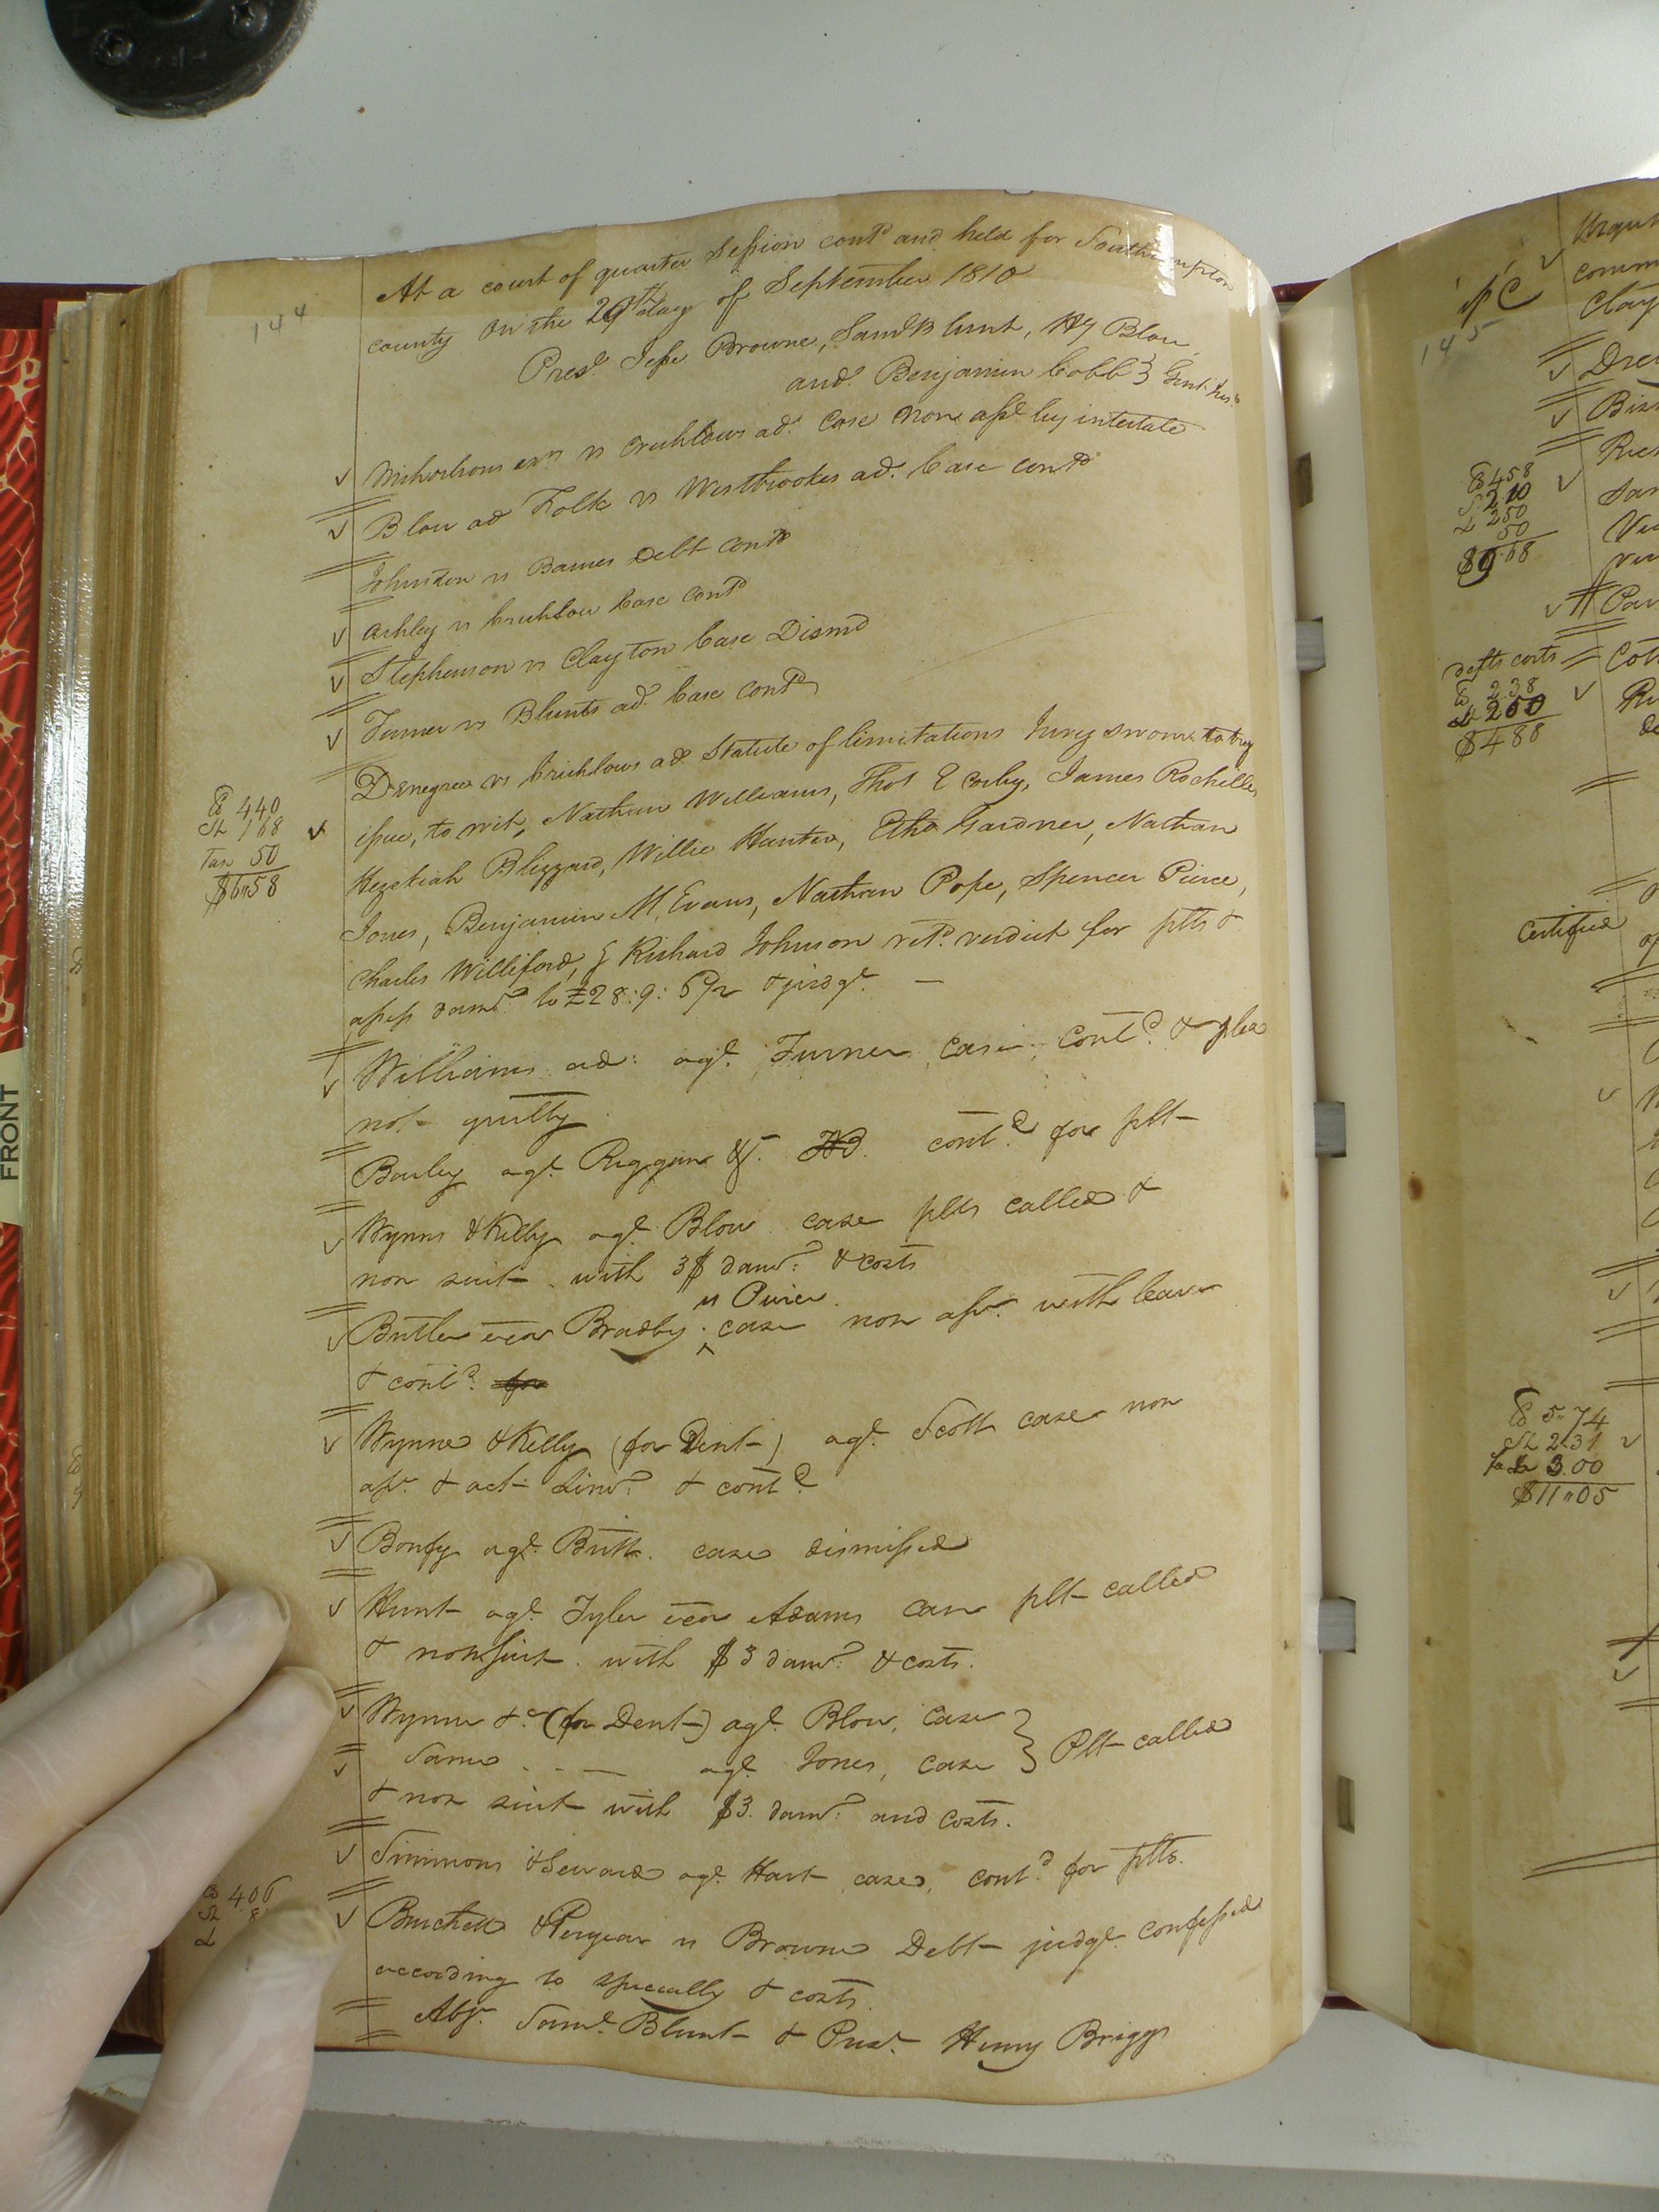 144
At a court of quarter Session contd and held for Southampton
county on the 20th day of September 1810
Prest Jesse Browne, Saml Blunt, Hy Blow
and Benjamin Cobb } Gent. Jus.
vs Crichlows ad. Case non asst by intestate
Blow ad Folk vs Westbrookes ad. Case contd
Johnston vs Barnes Debt contd
Ashley vs Crichlow Case contd
Stephenson vs Clayton Case Dismd
Turner vs Blunts ad. Case contd
vs Crichlows ad Statute of limitations Jury sworn to try
£ 440
Sh 168
Tax 50
$6"58
issue, to wit, Nathan Williams, Thos E Corby, James Rochelle,
Hezekiah Blizzard, Willie Hunter, Etho Gardner, Nathan
Jones, Benjamin M. Evans, Nathan Pope, Spencer Pierce,
Charles Williford, & Richard Johnson retd. verdict for plts &
assess damd. to £28:9: & judgt. —
Williams ad: agt. Turner Case, Contd. & plea
not guilty
agt. Riggan contd. for plt
Wynns & Kelly agt. Blow case plts called &
non suit with 3$ damd: & costs
vs Purer
Butler Bradby case non asst. with leave
& contd. for
Wynne & Kelly (for Dent) agt. Scott case non
asst. & act Limd. & contd.
agt. Britt. case dismissed
Hunt agt. Tyler Adams case plt called
& nonsuit. with $3 damd: & costs.
Wynne &c (for Dent) agt. Blow, Case } Plt called
Same - - — agt. Jones, Case
& non suit with $3. damd: and costs.
Simmons & Seward agt. Hart case, contd. for plts.
406
Burchett & Puryear vs Browne Debt judgt. confessed
according to specialty & costs.
Abst. Saml. Blunt & Prest. Henry Briggs
145
comm
Clay
458
210
250
50
$9.68
defts costs
238
250
$488
certified
5"74
Sh 2.31
3.00
$11"05
FRONT